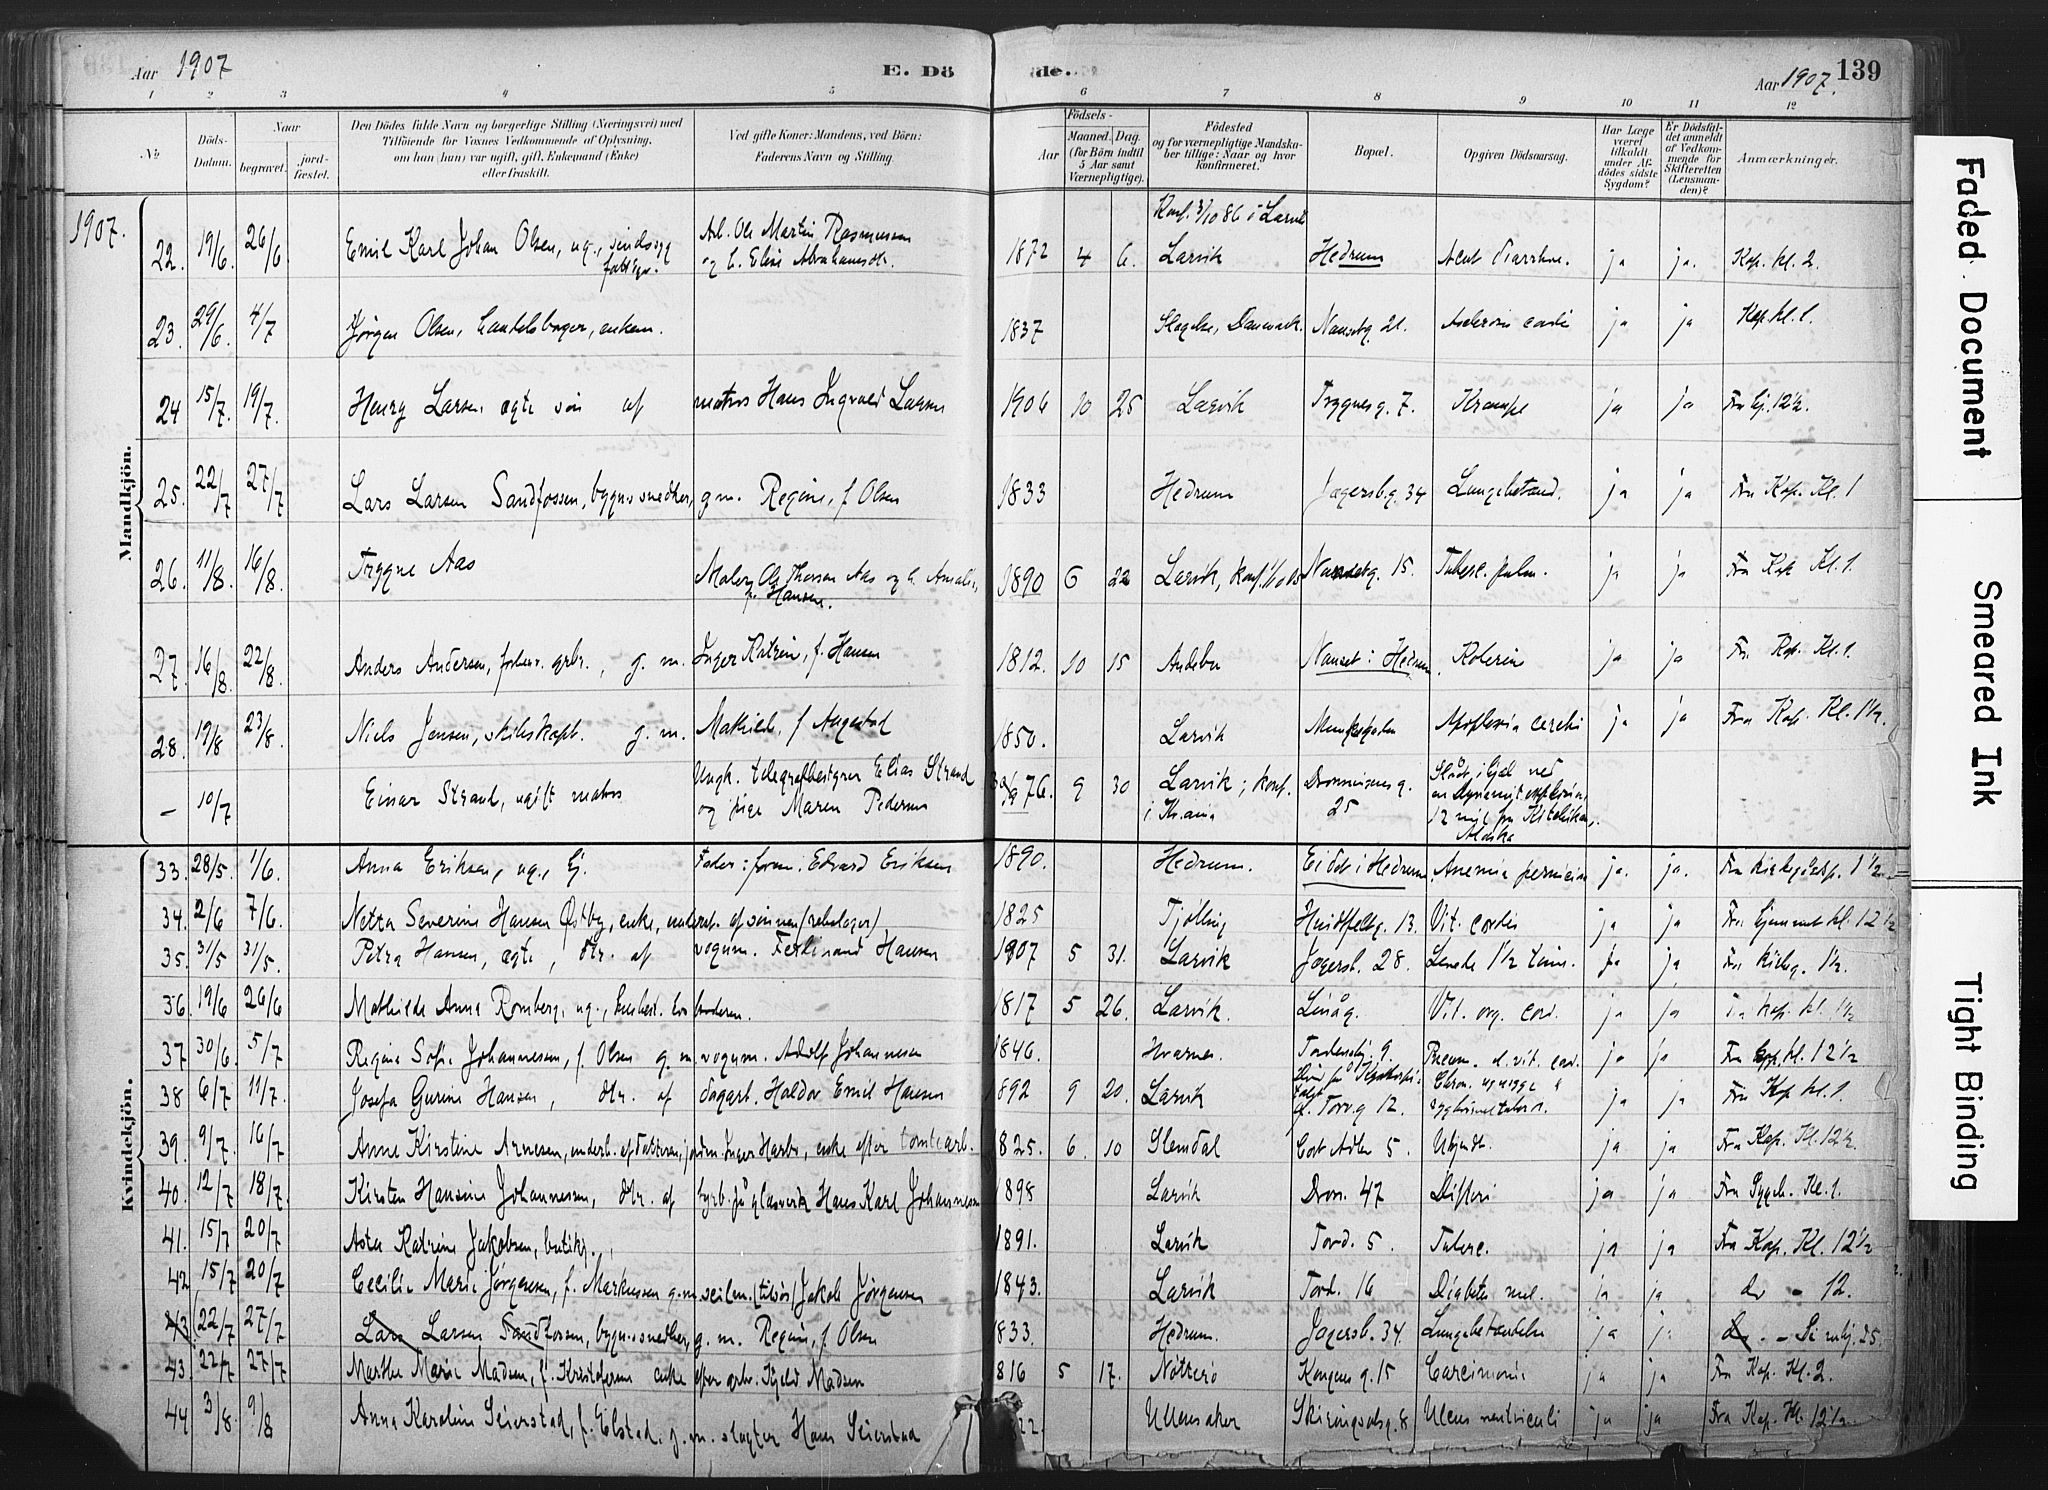 Aar 1907
E. Döde.
Aar 1907.
139
1 2 3 4 5 6 7 8 9 10 11 12
No
Döds-Datum.
Naar
begravet.
jord-fæstet.
Den Dödes fulde Navn og borgerlige Stilling (Næringsvei) med
Tilföiende for Voxnes Vedkommende af Oplysning,
om han (hun) var ugift, gift, Enkemand (Enke)
eller fraskilt.
Ved gifte Koner: Mandens, ved Börn:
Faderens Navn og Stilling.
Födsels-
Aar
Maaned. Dag.
(for Börn indtil
5 Aar samt
Værnepligtige).
Födested
og for værnepligtige Mandska-
ber tillige: Naar og hvor
konfirmeret.
Bopæl.
Opgiven Dödsaarsag.
Har Læge
været
tilkaldt
under Af-
dödes sidste
Sygdom?
Er Dödsfal-
det anmeldt
af Vedkom-
mende for
Skifteretten
(Lensman-
den)?
Anmærkninger.
1907.
Mandkjön.
22. 19/6. 26/6 Emil Karl Johan Olsen, ug., sindssyg Arb. Ole Martin Rasmussen og h. Elise Abrahamsdt. 1872 4 6. Konf. 3/10 86 i Larvik Larvik Hedrum Acut diarrhoe. ja ja. Kap. kl. 2.
23. 29/6. 4/7 Jørgen Olsen, handelsborger, enkem. 1837 Slagelse, Danmark. Nansetg. 21. cordis ja ja Kap. kl. 1.
24 15/7. 19/7. Henry Larsen, ægte søn af matros Hans Ingvald Larsen 1906 10 25 Larvik Trygves g. 7. Krampe ja ja Fra hj. 12½.
25. 22/7 27/7 Lars Larsen Sandfossen, bygn.snedker, g. m. Regine, f. Olsen 1833 Hedrum Jegersb.g. 34 Lungebetænd. ja ja Fra Kap. Kl. 1
26. 11/8. 16/8. Trygve Aas Maler Ole Thorsen Aas og h. Amalie, f. Hansen. 1890 6 22 Larvik, konf. Nansetg. 15. Tuberc. pulm. ja ja Fra Kap Kl. 1.
27. 16/8. 22/8. Anders Andersen, forhenv. grbr., g. m. Inger Katrine, f. Hansen 1812. 10 15 Andebu Nanset i Hedrum Kolerine ja ja Fra Kap. Kl. 1.
28. 19/8 23/8. Niels Jensen, skibskapt. g. m. Mathilde, f. Angestad 1850. Larvik Munkegaden Apoplexia cerebri ja ja Fra Kap. Kl. 1½.
– 10/7 Einar Strand, ugift matros Ungk. telegrafbestyrer Elias Strand og pige Maren Pedersen 76. 9 30 Larvik; konf. i Kr.ania Dronningens g. 25 Slået ihjel ved en dynamitexplosion, 12 mil fra Ketchikan, Alaska
Kvindekjön.
33. 28/5. 1/6. Anna Eriksen, ug., Fader: form. Edvard Eriksen 1890. Hedrum. Eidet i Hedrum Anemia perniciosa ja. ja. Fra kirkeg.kap. 1½.
34. 2/6 7/6. Netta Severine Hansen Østby, enke, underst. af sønnen (rebslager) 1825 Tjølling Hvidtfeltg. 13. Vit. cordis ja ja Fra hjemmet kl. 12½
35. 31/5 31/5. Petra Hansen, ægte, dtr. af vognm. Ferdinand Hansen 1907 5 31. Larvik Jegersb. 28. Levede 1½ time. ja ja Fra kirkeg. 1½.
36. 19/6 26/6 Mathilde Anna Romberg, ug., broderen. 1817 5 26. Larvik. Linåg. Vit. org. cord. ja ja Fra kap. kl. 1½
37 30/6. 5/7 Regine Sofie Johannesen, f. Olsen g. m. vognm. Adolf Johannesen 1846. Hvarnes. Tordenskj. 9. Pneum. et vit. cord. ja ja Fra kap. kl. 12½
38 6/7 11/7. Josefa Gurine Hansen, dtr. af dagarb. Haldor Emil Hansen 1892 9 20. Larvik Torvg 12. ja ja Fra Kap kl. 1.
39. 9/7. 16/7. Anne Kirstine Arnesen, underh. af datteren, jordm. Inger Harbo, enke efter tomtearb. 1825. 6. 10 Slemdal Cort Adler 5. Ubekjendt. ja ja Fra Kap. Kl. 12½.
40. 12/7 18/7. Kirsten Hansine Johannesen, dtr. af fyrb. på glasverk Hans Karl Johannesen 1898 Larvik Dron. 47 Difteri ja ja Fra Sygeh. Kl. 1.
41. 15/7 20/7 Asta Katrine Jakobsen, butikj. 1891. Larvik Tord. 5. Tuberc. ja ja Fra Kap. Kl. 12½
42 15/7 20/7 Cecilie Marie Jørgensen, f. Markussen g.m. seilm. (tilsjøs) Jakob Jørgensen 1843. Larvik Tord. 16 Diabetes mel. ja ja do - 12.
43. 22/7 27/7 Lars Larsen Sandfossen, bygn.snedker, g. m. Regine, f. Olsen 1833. Hedrum. Jegersb. 34. Lungebetændelse ja ja do. - Se mkj. 25.
43. 22/7 27/7 Marthe Marie Madsen, f. Kristofersen enke efter arb. Kjeld Madsen 1816 5 17. Nötterö Kongens g. 15 Carcinoma ja ja Fra Kap. Kl. 2.
44 3/8. 9/8 Anna Karoline Seierstad, f. Eilstad, g. m. slagter Hans Seierstad 22. Ullensaker Skiringssalsg. 8 Ulcus ventriculi ja ja Fra Kap. Kl. 12½.
Faded Document
Smeared Ink
Tight Binding